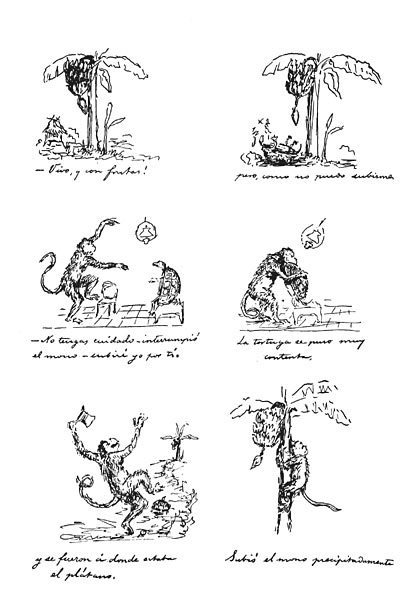 — Vivo, y con frutas!
pero, como no puedo subirme
— No tengas cuidado — interrumpió
el mono — subiré yo por ti.
La tortuga se puso muy
contenta.
y se fueron á donde estaba
el plátano.
Subió el mono precipitadamente